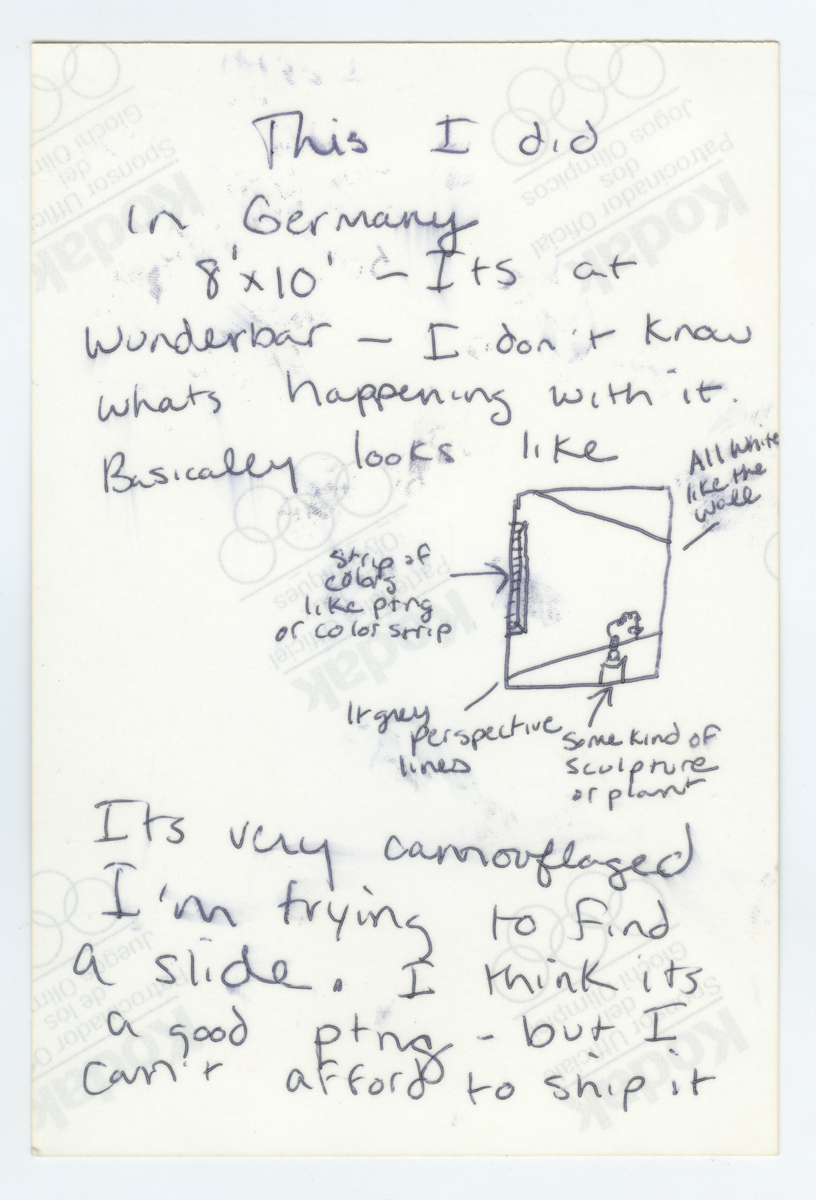 This I did
in Germany
8'x10' - Its at
Wunderbar - I don't know
whats happening with it.
Basically looks like
All white
like the
wall
strip of
colors
like ptng
or color strip
lt grey
perspective
lines
some kind of
sculpture
or plant
Its very camouflaged
I'm trying to find
a slide. I think its
a good ptng - but I
can't afford to ship it
Giochi Olim
dei
Sponsor Ufficial
Kodak
Jogos Olímpicos
dos
Patrocinador Oficial
Kodak
Kodak
Juegos Olím
de los
Patrocinador O
Kodak
Giochi Olimpic
dei
Sponsor Ufficial
Kodak